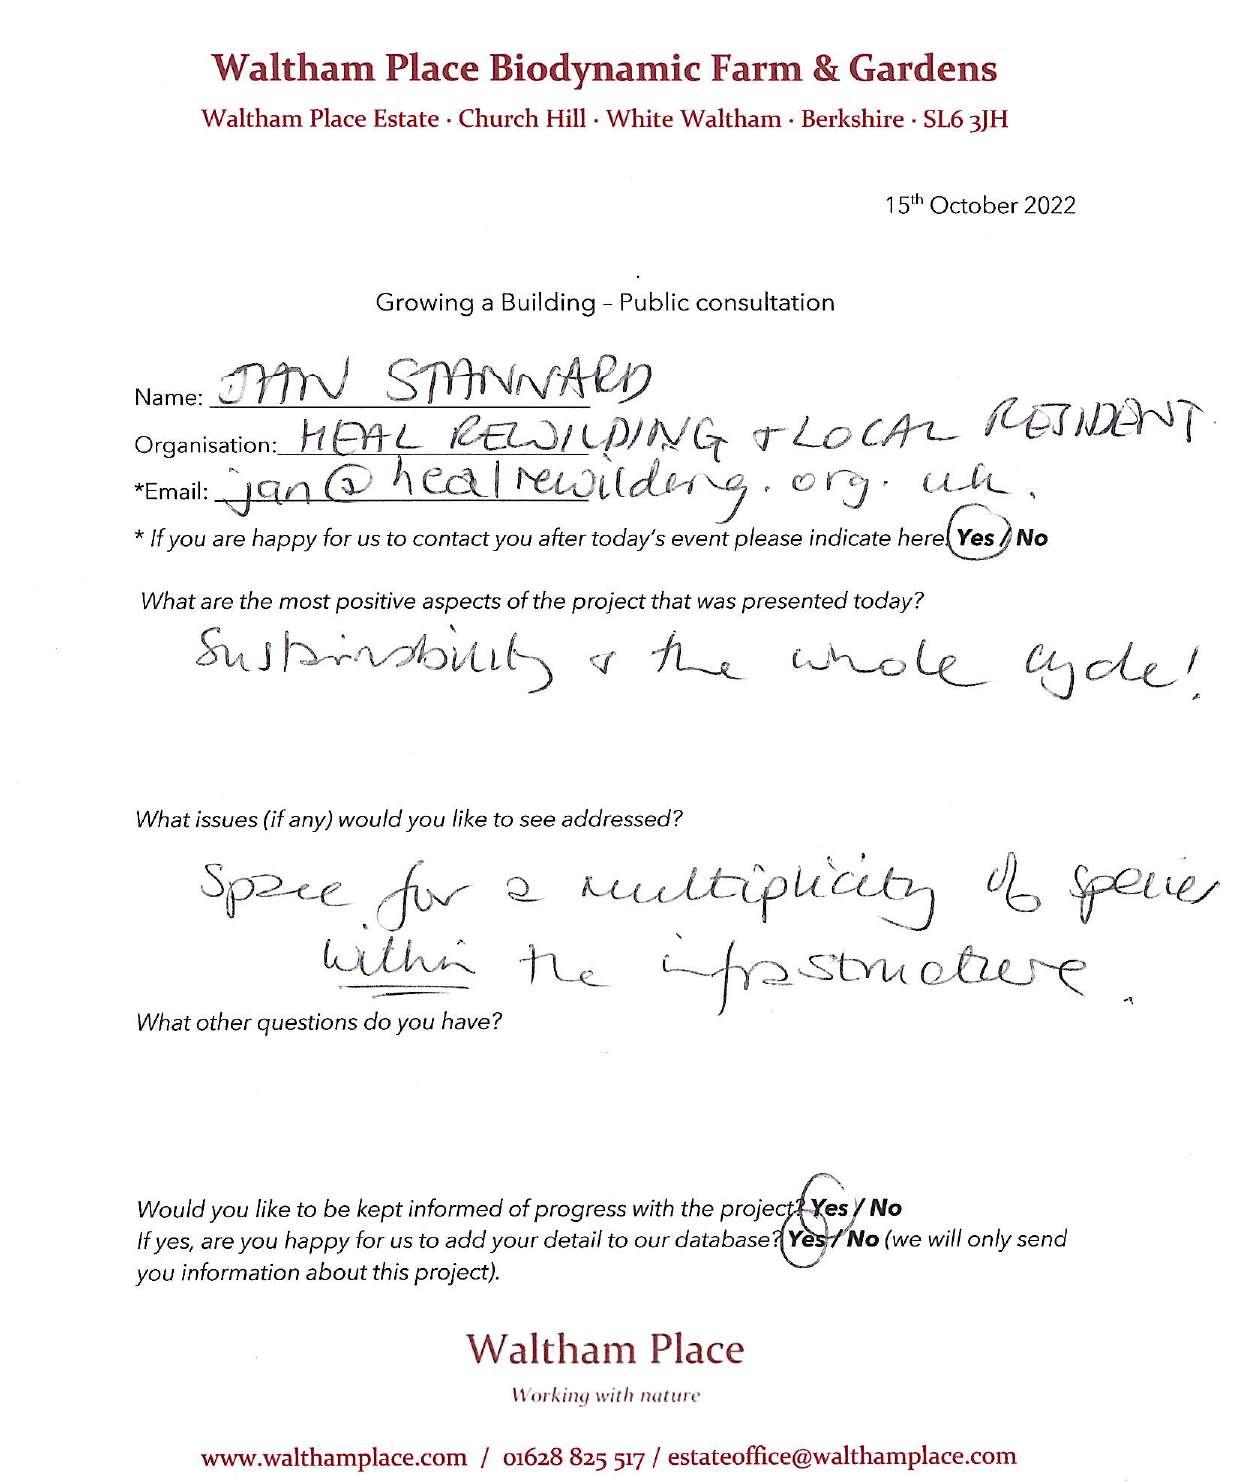 Waltham Place Biodynamic Farm & Gardens
Waltham Place Estate · Church Hill · White Waltham · Berkshire · SL6 3JH
15th October 2022
Growing a Building – Public consultation
Name: JAN STANNARD
Organisation: HEAL REWILDING + LOCAL RESIDENT.
*Email: jan@healrewilding.org.uk.
* If you are happy for us to contact you after today's event please indicate here Yes / No
What are the most positive aspects of the project that was presented today?
Sustainability + the whole cycle!
What issues (if any) would you like to see addressed?
Space for a multiplicity of species
within the infrastructure.
What other questions do you have?
Would you like to be kept informed of progress with the project? Yes / No
If yes, are you happy for us to add your detail to our database? Yes / No (we will only send
you information about this project).
Waltham Place
Working with nature
www.walthamplace.com / 01628 825 517 / estateoffice@walthamplace.com